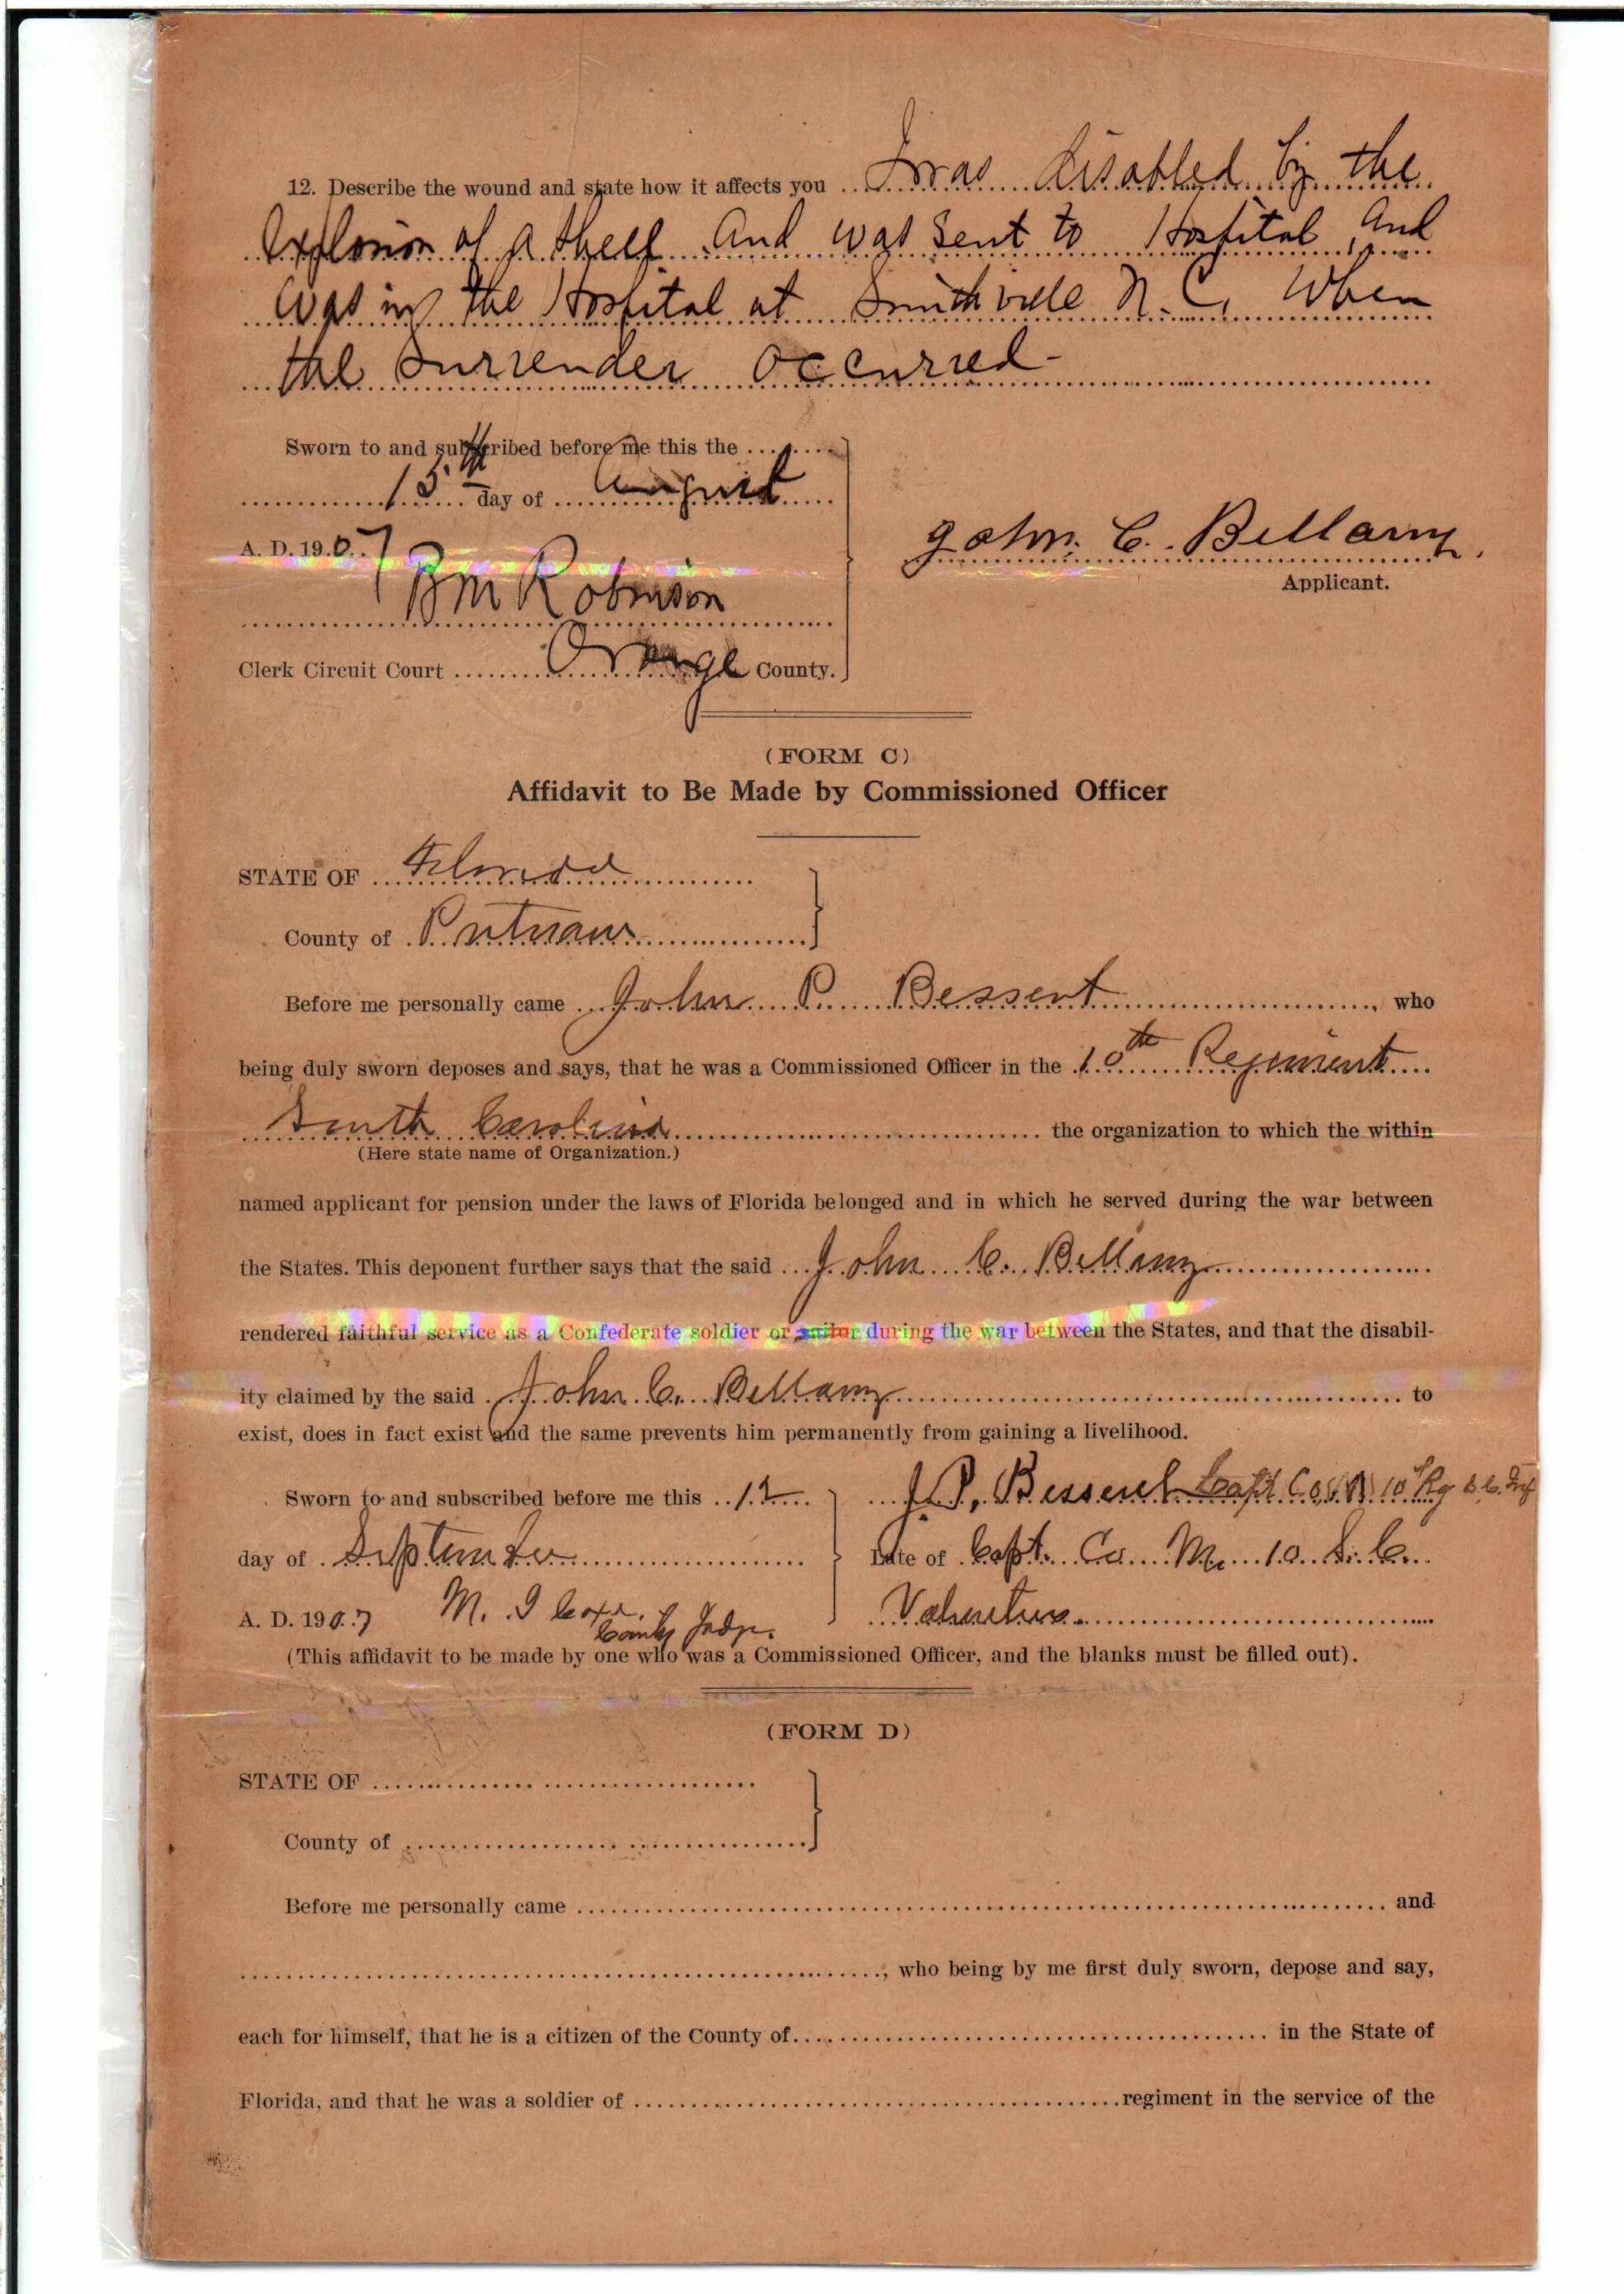 12. Describe the wound and state how it affects you I was disabled by the
Explosion of a shell and was sent to Hospital, and
was in the Hospital at Smithville N. C. When
the surrender occurred-
Sworn to and subscribed before me this the
15th day of August
A. D. 1907
B M Robinson
Clerk Circuit Court Orange County.
John. C. Bellamy.
Applicant.
(FORM C)
Affidavit to Be Made by Commissioned Officer
STATE OF Florida
County of Putnam
Before me personally came John P. Bessent, who
being duly sworn deposes and says, that he was a Commissioned Officer in the 10th Regiment
South Carolina the organization to which the within
(Here state name of Organization.)
named applicant for pension under the laws of Florida belonged and in which he served during the war between
the States. This deponent further says that the said John C. Bellamy
rendered faithful service as a Confederate soldier or sailor during the war between the States, and that the disabil-
ity claimed by the said John C. Bellamy to
exist, does in fact exist and the same prevents him permanently from gaining a livelihood.
Sworn to and subscribed before me this 12
day of September
A. D. 1907 M. I Coxe.
County Judge.
J. P. Bessent Capt Co M 10th Rg S. C. Inf
Late of Capt. Co. M. 10 S. C.
Volunteers.
(This affidavit to be made by one who was a Commissioned Officer, and the blanks must be filled out).
(FORM D)
STATE OF
County of
Before me personally came and
, who being by me first duly sworn, depose and say,
each for himself, that he is a citizen of the County of in the State of
Florida, and that he was a soldier of regiment in the service of the